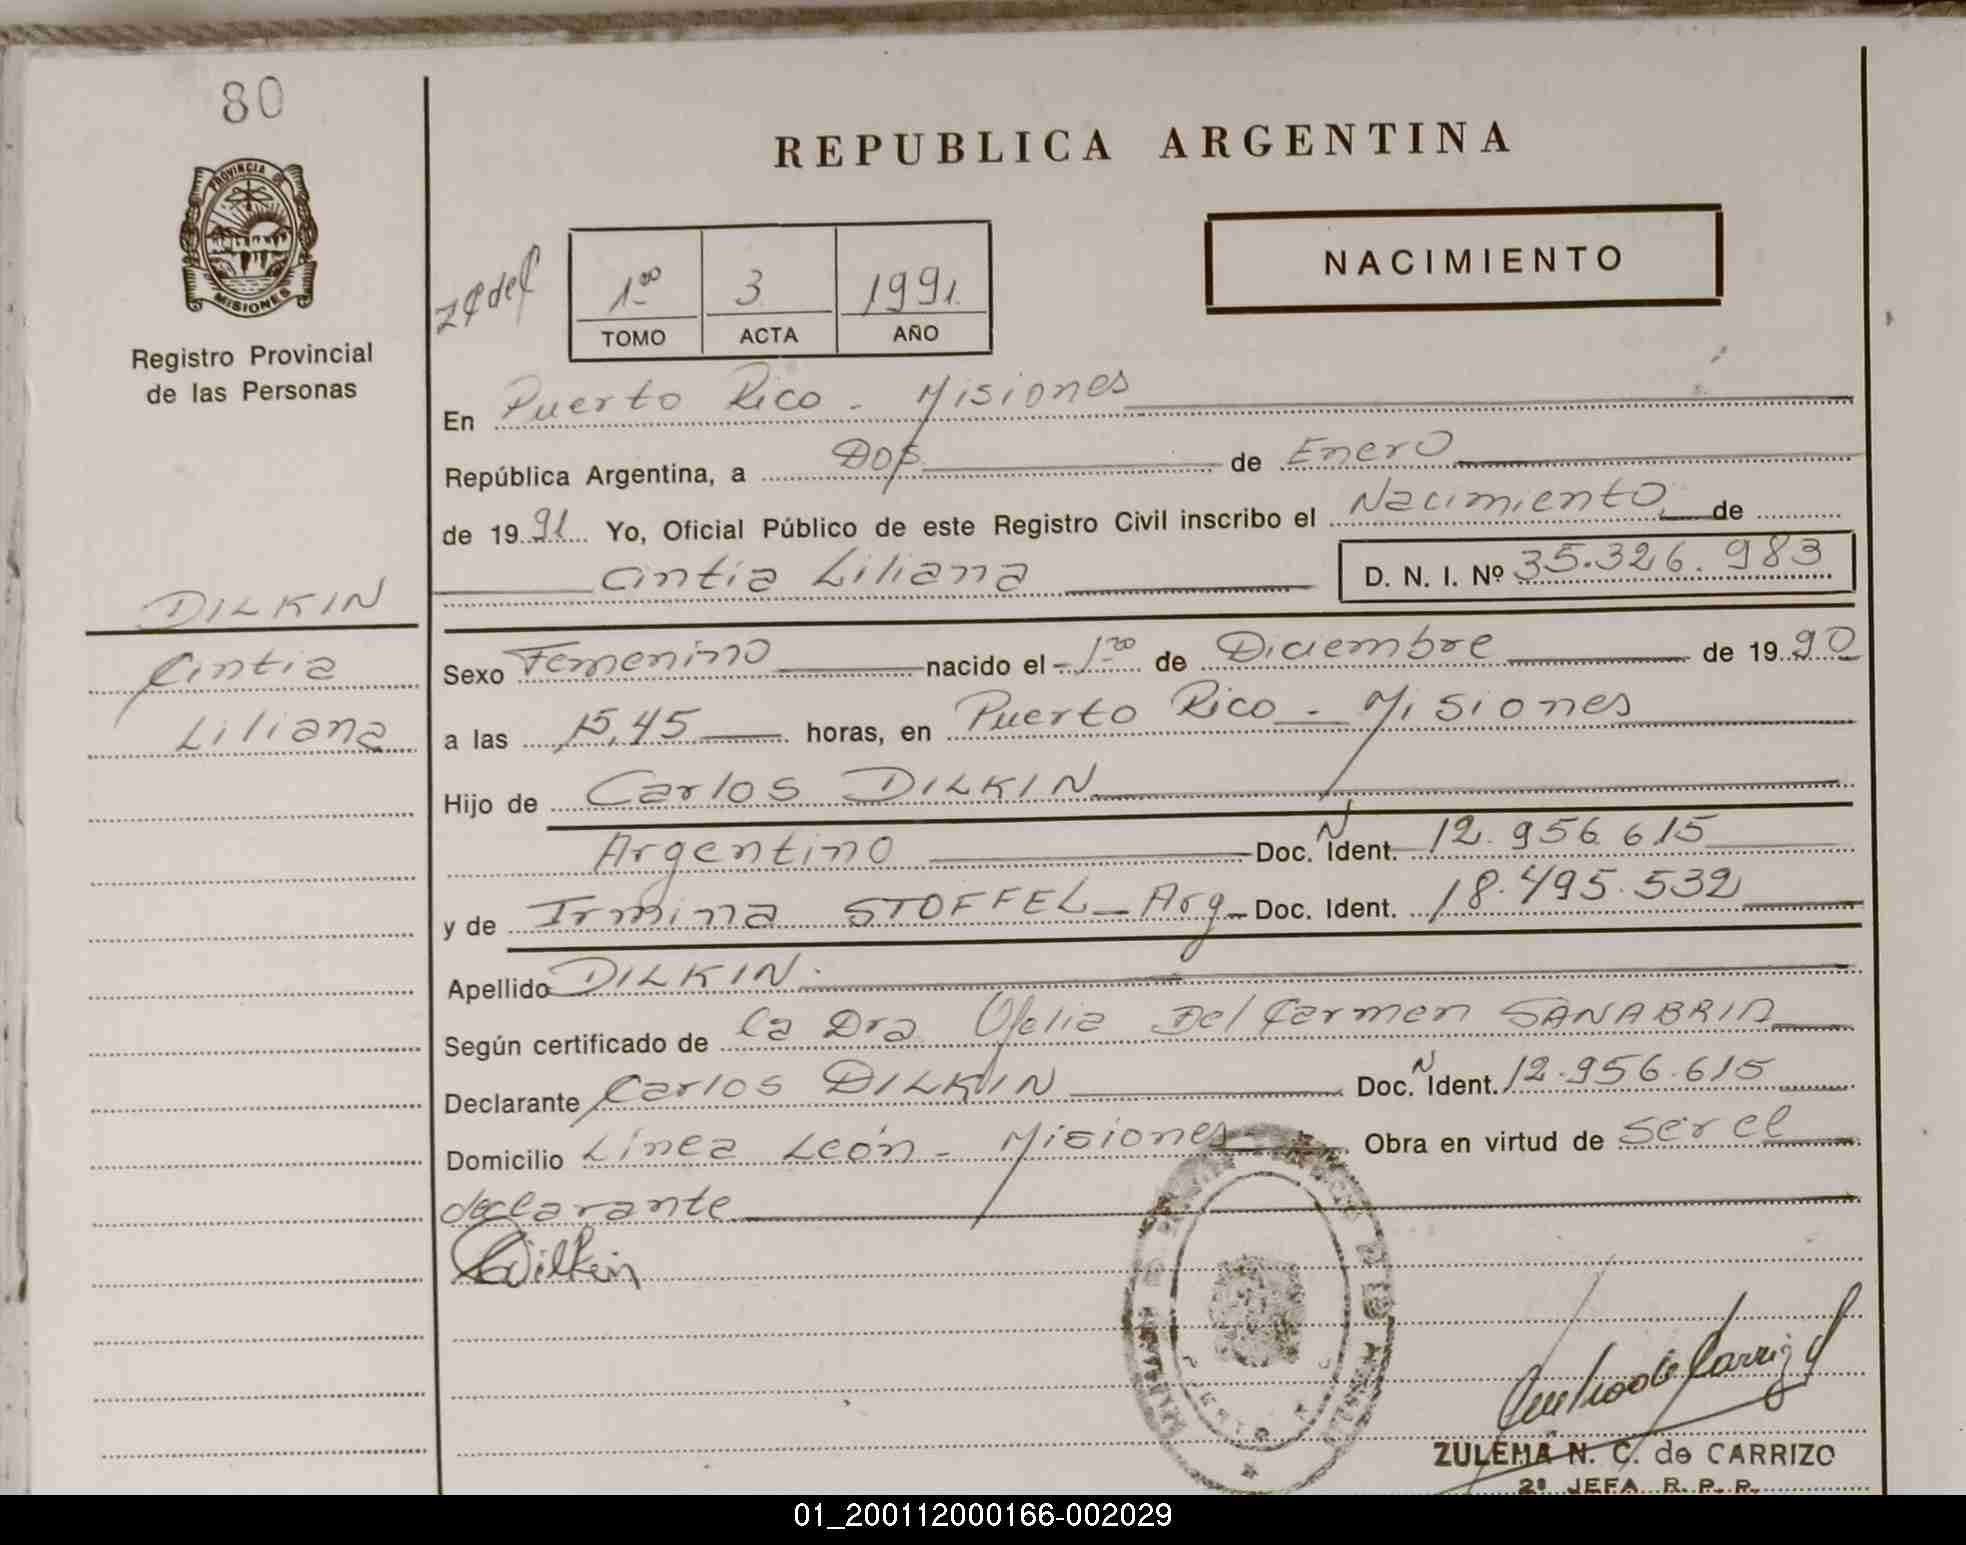 80
PROVINCIA DE
MISIONES
Registro Provincial
de las Personas
DILKIN
Cintia
Liliana
REPUBLICA ARGENTINA
NACIMIENTO
1ro 3 1991
TOMO ACTA AÑO
En Puerto Rico - Misiones
República Argentina, a Dos de Enero
de 1991 Yo, Oficial Público de este Registro Civil inscribo el Nacimiento de
Cintia Liliana D. N. I. Nº 35.326.983
Sexo Femenino nacido el 1ro de Diciembre de 1990
a las 15,45 horas, en Puerto Rico - Misiones
Hijo de Carlos DILKIN
Argentino Doc. N Ident. 12.956.615
y de Irmina STOFFEL - Arg - Doc. Ident. 18.495.532
Apellido DILKIN.
Según certificado de la Dra Ofelia Del Carmen SANABRIA
Declarante Carlos DILKIN Doc. N Ident. 12.956.615
Domicilio Línea León - Misiones Obra en virtud de ser el
declarante
CDilkin
ZULEMA N. C. de CARRIZO
2º JEFA R. P. P.
01_200112000166-002029